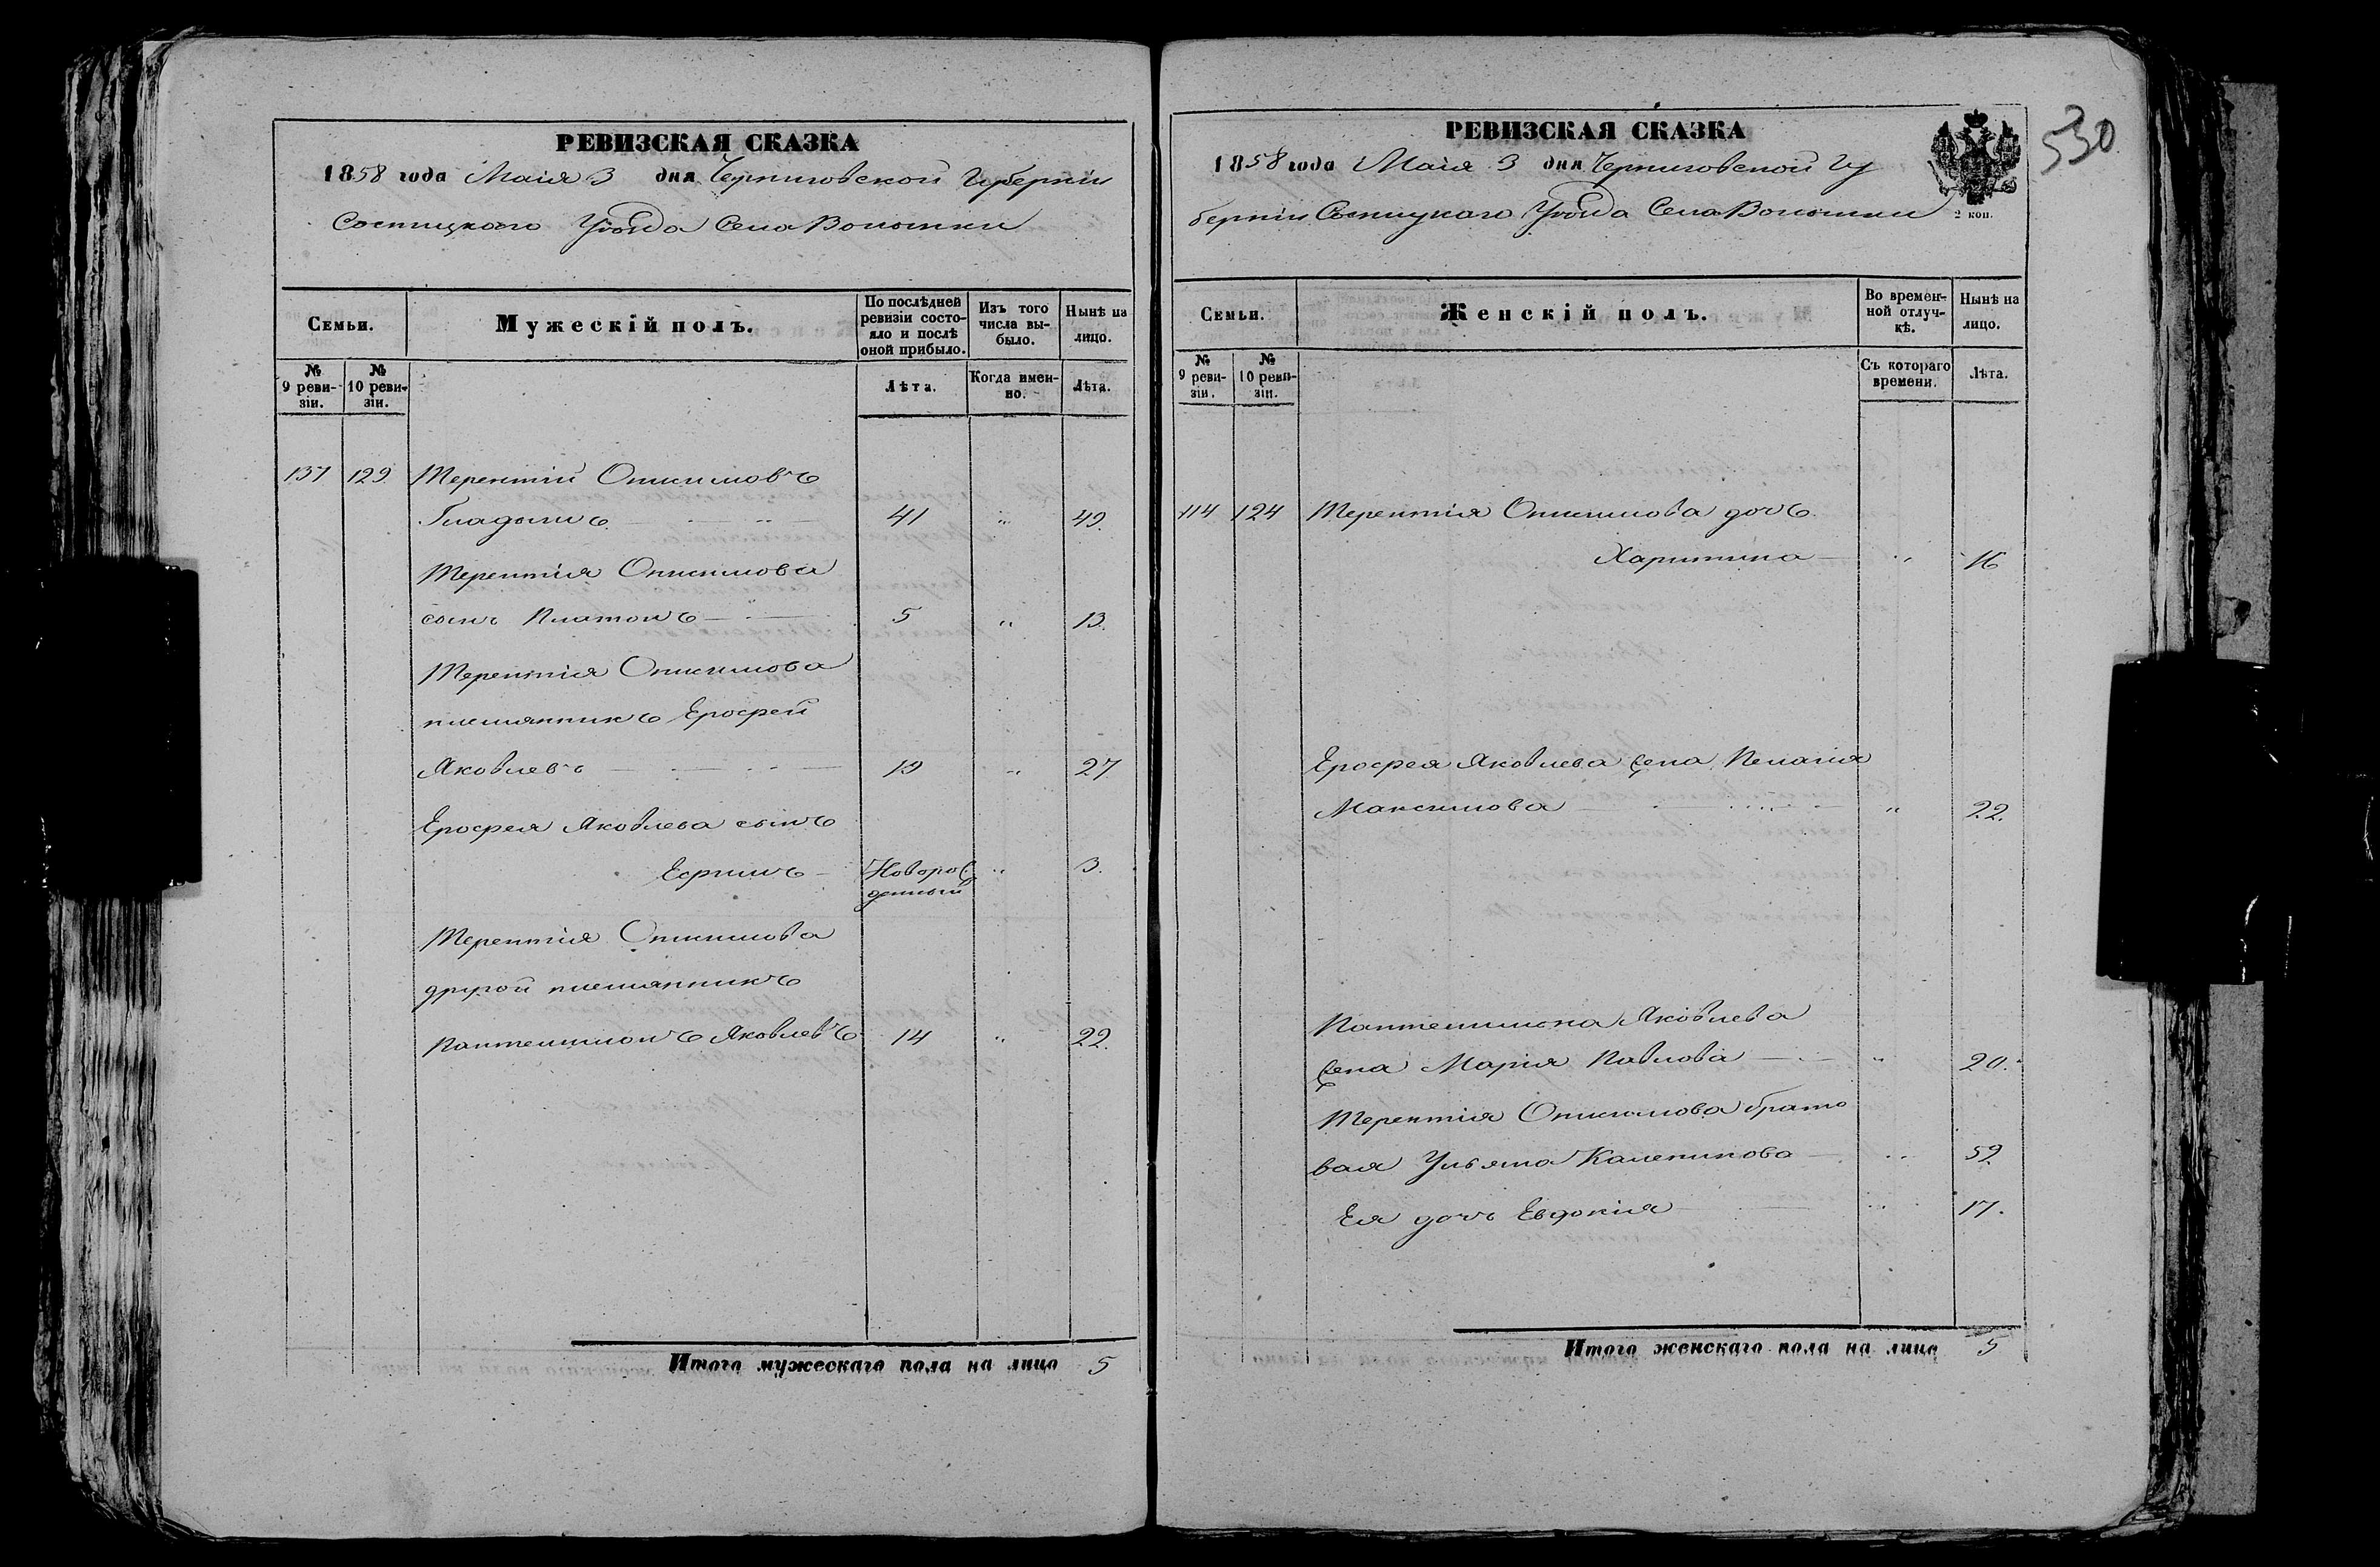 РЕВИЗСКАЯ СКАЗКА
1858 года Маія 3 дня Черниговской Губерніи
Сосницкаго Уѣзда Села Волынки
Семьи.
Мужескій полъ.
По послѣдней ревизіи состояло и послѣ оной прибыло.
Изъ того числа выбыло.
Нынѣ на лицо.
№ 9 ревизіи.
№ 10 ревизіи.
Лѣта.
Когда именно.
Лѣта.
137 129 Терентій Онисимовъ
41 " 49.
Терентія Онисимова
сынъ Платонъ 5 " 13.
Терентія Онисимова
племянникъ Ерофей
Яковлевъ 19 " 27
Ерофея Яковлева сынъ
Ефимъ Новорожденный " 3.
Терентія Онисимова
другой племянникъ
Пантелимонъ Яковлевъ 14 " 22.
Итого мужескаго пола на лицо 5
РЕВИЗСКАЯ СКАЗКА
1858 года Маія 3 дня Черниговской Гу
берніи Сосницкаго Уѣзда Села Волынки
2 коп.
530
Семьи.
Женскій полъ.
Во временной отлучкѣ.
Нынѣ на лицо.
№ 9 ревизіи.
№ 10 ревизіи.
Съ котораго времени.
Лѣта.
114 124 Терентія Онисимова дочь
Харитина " 16
Ерофея Яковлева жена Пелагія
Максимова " 22.
Пантелимона Яковлева
жена Марія Павлова " 20.
Терентія Онисимова брато
вая Ульяна Каленикова " 59.
Ея дочь Евдокія " 17.
Итого женскаго пола на лицо 5